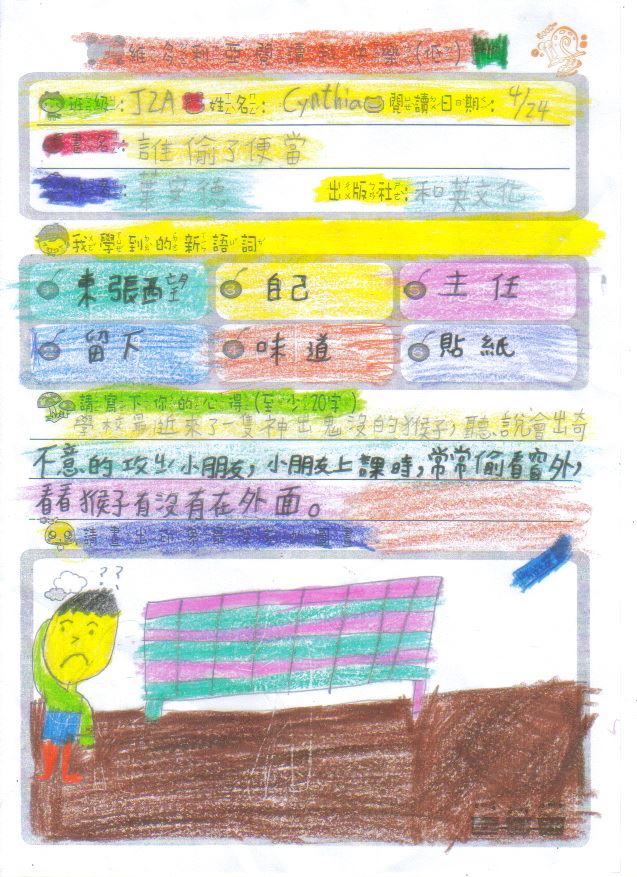 維多利亞閱讀 快樂(低)
班級：JZA 姓名：Cynthia 閱讀日期：4/24
書名：誰偷了便當
作者：葉安德 出版社：和英文化
我學到的新語詞
東張西望 自己 主任
留下 味道 貼紙
請寫下你的心得(至少20字)
學校最近來了一隻神出鬼沒的猴子，聽說會出奇
不意的攻 小朋友，小朋友上課時，常常偷看窗外，
看看猴子有沒有在外面。
請畫出印象最深刻的圖畫
??